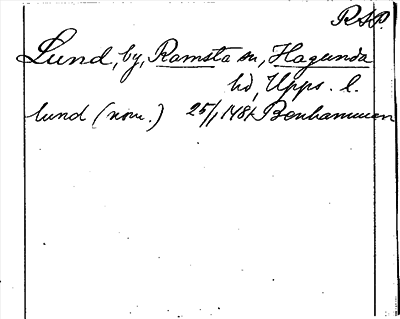 R.S.P.
Lund, by, Ramsta sn, Hagunda
hd, Upps. l.
lund (nom.) 25/1 1481 Benhammar